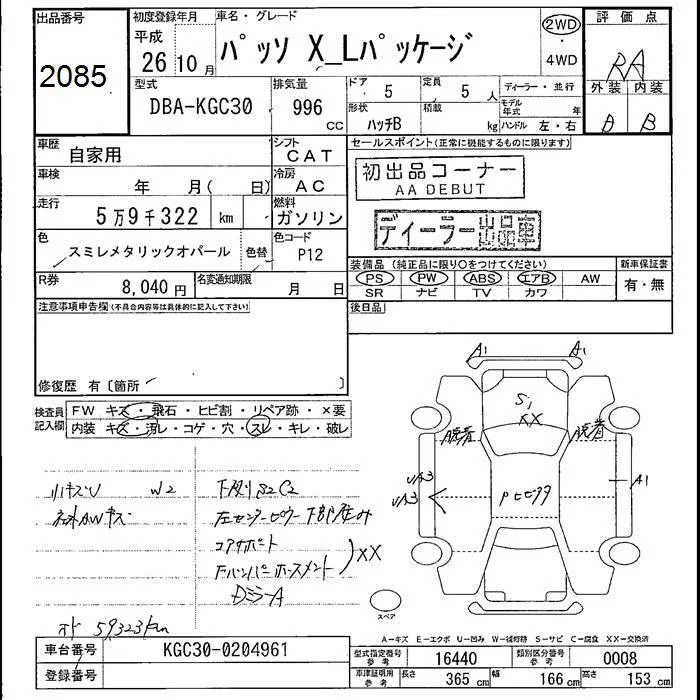 出品番号 初度登録年月 車名・グレード 評価点
2085 平成 26年 10月 パッソ X_Lパッケージ 2WD・4WD RA
外装 内装
B
型式 排気量 ドア 5 定員 5人 ディーラー・並行
DBA-KGC30 996cc 形状 ハッチB 積載 kg モデル年式 年
ハンドル 左・右
車歴 自家用 シフト CAT セールスポイント(正常に機能するものに限ります)
車検 年 月( 日) 冷房 AC 初出品コーナー
AA DEBUT
走行 5万9千322 km 燃料 ガソリン ディーラー出品車
色 スミレメタリックオパール 色替 色コード P12
装備品(純正品に限り○をつけてください) 新車保証書
PS PW ABS エアB AW 有・無
SR ナビ TV カワ
R券 8,040円 名変通知期限 月 日
注意事項申告欄(不具合内容等は具体的に記入して下さい) 後日品
修復歴 有〔箇所 〕
検査員記入欄 FW キズ・飛石・ヒビ割・リペア跡・×要
内装 キズ・汚レ・コゲ・穴・スレ・キレ・破レ
A1 A1
S1
XX
脱着 脱着
A1
小キズU W2 下廻りS2C2
左センターピラー下部歪み
コアサポート
XX
DミラーA
59323km
スペア
A−キズ E−エクボ U−凹み W−補修跡 S−サビ C−腐食 XX−交換済
車台番号 KGC30-0204961
登録番号
型式指定番号 参考 16440 類別区分番号 参考 0008
車庫証明用 参考 長さ 365 cm 幅 166 cm 高さ 153 cm